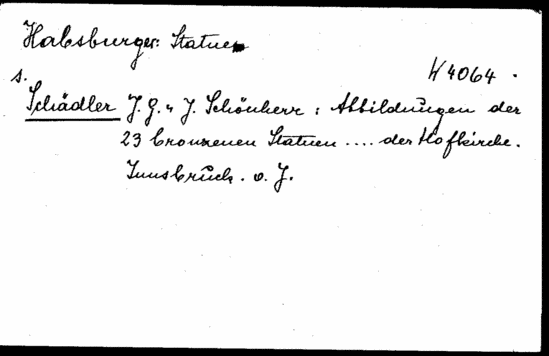 Habsburger: Statuen
s. H 4064.
Schädler J. G. u J. Schönherr: Abbildungen der
23 bronzenen Statuen .... der Hofkirche.
Innsbruck. o. J.